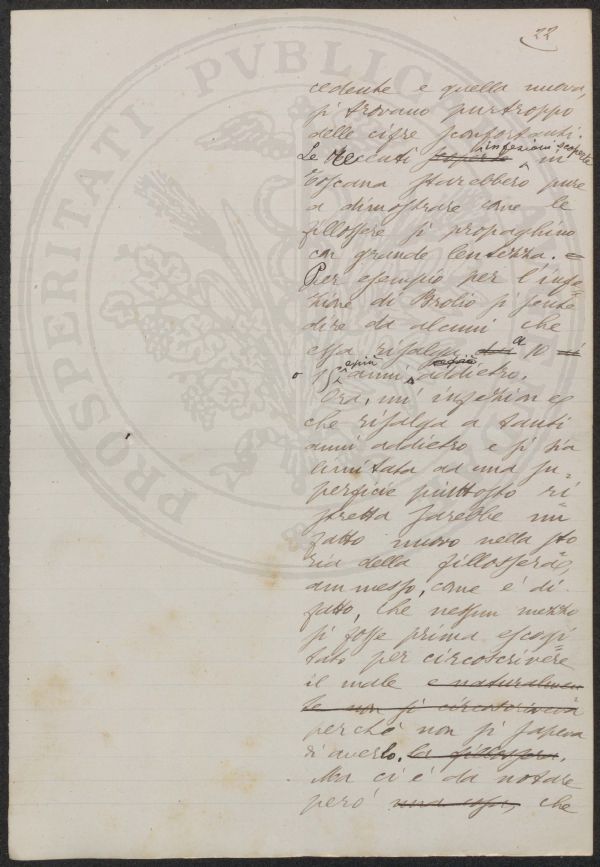 22
cedente e quella nuova,
si trovano purtroppo
delle cifre sconfortanti.
Le recenti scoperte infezioni scoperte in
Toscana starebbero pure
a dimostrare come le
fillossere si propaghino
con grande lentezza. =
Per esempio per l'infe=
zione di Brolio si sente
dire da alcuni che
essa risalga a 10
o 15 e più anni addietro.
Ora, un' infezione
che risalga a tanti
anni addietro e si sia
limitata ad una su=
perficie piuttosto ri
stretta sarebbe un
fatto nuovo nella sto
ria della fillossera,
ammesso, come è di
fatto, che nessun mezzo
si fosse prima escogi
tato per circoscrivere
il male e naturalmen
te non si circoscriveva
perché non si sapeva
di averlo. la fillossera.
Ma ci è da notare
però una cosa, che
PROSPERITATI PVBLICAE